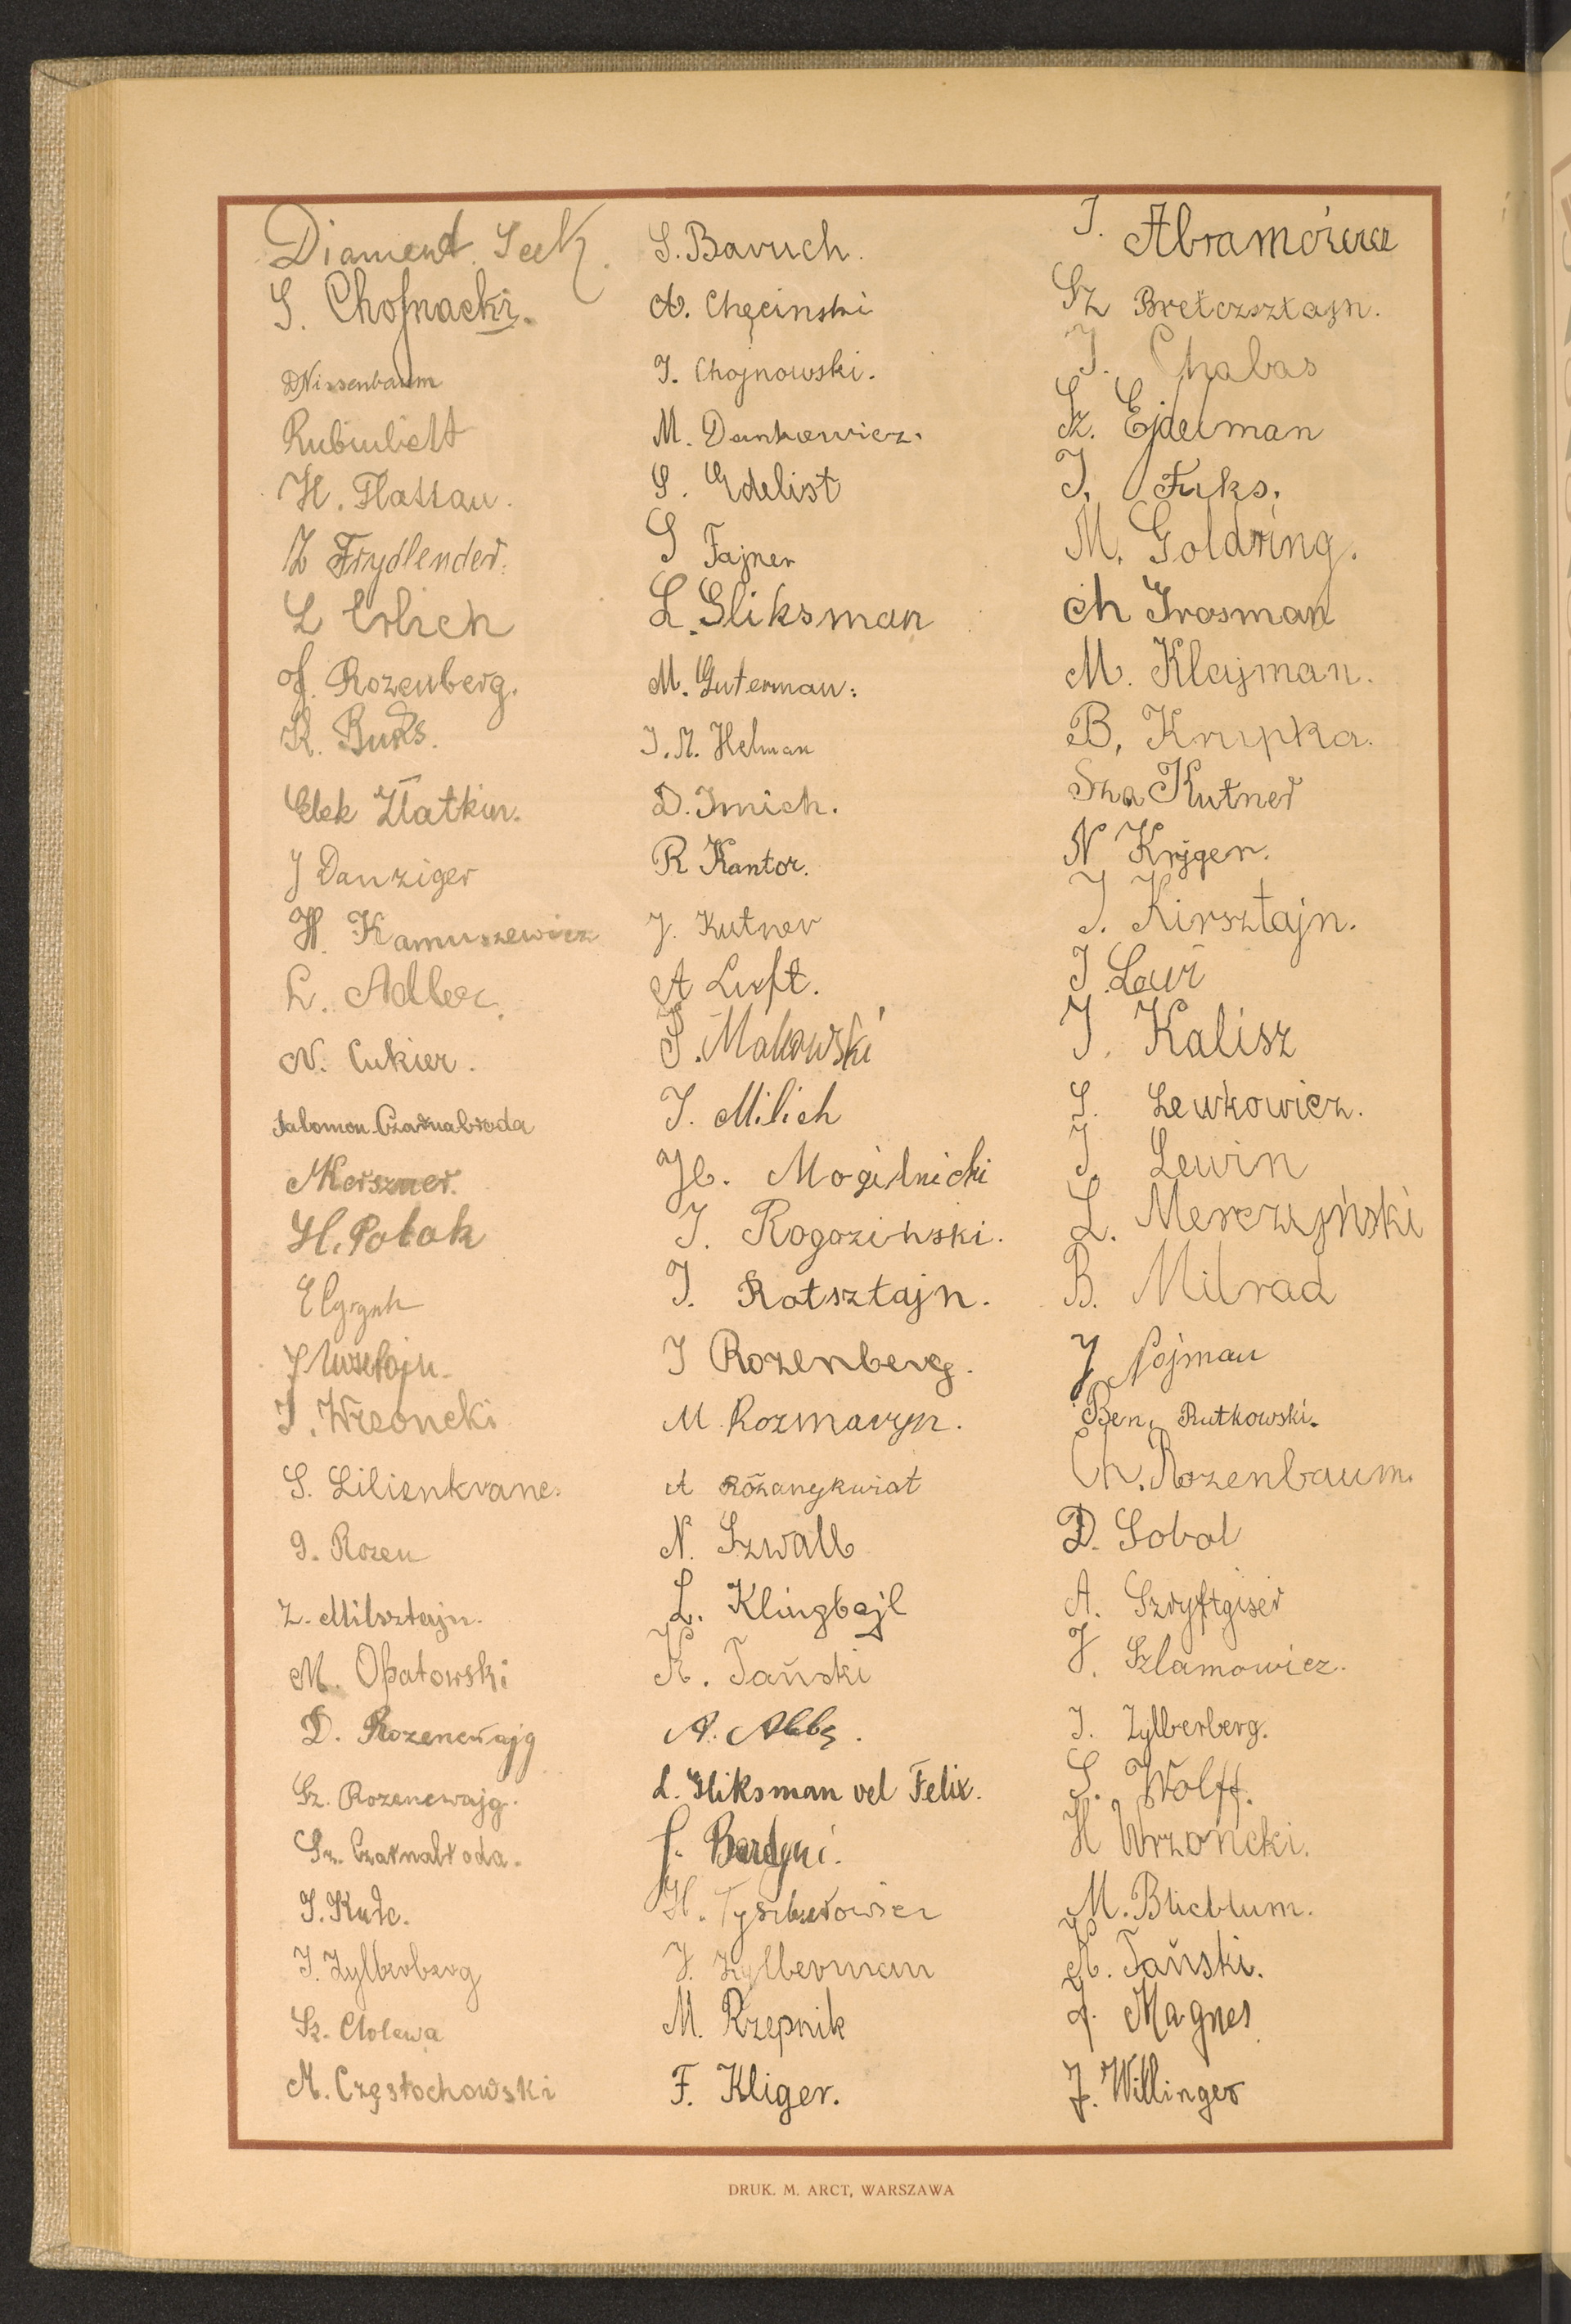 Diament. Seek.
S. Chojnacki.
D Nissenbaum
Rubinlicht
H. Flattau.
Z Frydlender.
L Erlich
J. Rozenberg.
R. Buks.
Elek Złatkin.
J Danziger
H. Kamuszewicz
L. Adler.
N. Cukier.
Salomon Czarnabroda
M Kerszner.
H. Polak
E Cygryk
I. Wrzoncki
S. Lilienkranc.
I. Rozen
Z. Milsztajn.
M. Opatowski
D. Rozencwajg
Sz. Rozencwajg.
Sz. Czarnabroda.
I. Kutc.
I. Zylberberg
Sz. Cholewa
M. Częstochowski
S. Baruch.
A. Chęcinski
I. Chojnowski.
M. Dankowicz.
S. Edelist
S Fajner
L. Gliksman
M. Guterman.
I. M. Helman
D. Imich.
R Kantor.
J. Kutner
A Luft.
S. Makowski
I. Milich
H. Mogilnicki
I. Rogozinski.
I. Rotsztajn.
I Rozenberg.
M. Rozmaryn.
A Różanykwiat
N. Szwalb
L. Klingbajl
K. Tański
A. Abbe.
L. Gliksman vel Felix.
J. Bardyni.
H. Tyszberowicz
J. Zylberman
M. Rzepnik
F. Kliger.
I. Abramowicz
Sz Bretczsztajn.
I. Chabas
Sz. Ejdelman
I. Fuks.
M. Goldring.
Ch Grosman
M. Klajman.
B. Krupka.
Sza Kutner
N Kryger.
I. Kirsztajn.
I. Lewi
I. Kalisz
S. Lewkowicz.
I. Lewin
L. Merczyński
B. Milrad
J Nojman
Ben. Rutkowski.
Ch. Rozenbaum.
D. Sobol
A. Szryftgiser
J. Szlamowicz.
I. Zylberberg.
S. Wolff.
H Wrzoncki.
M. Blieblum.
K. Tański.
J. Magnes
J. Willinger
DRUK. M. ARCT, WARSZAWA